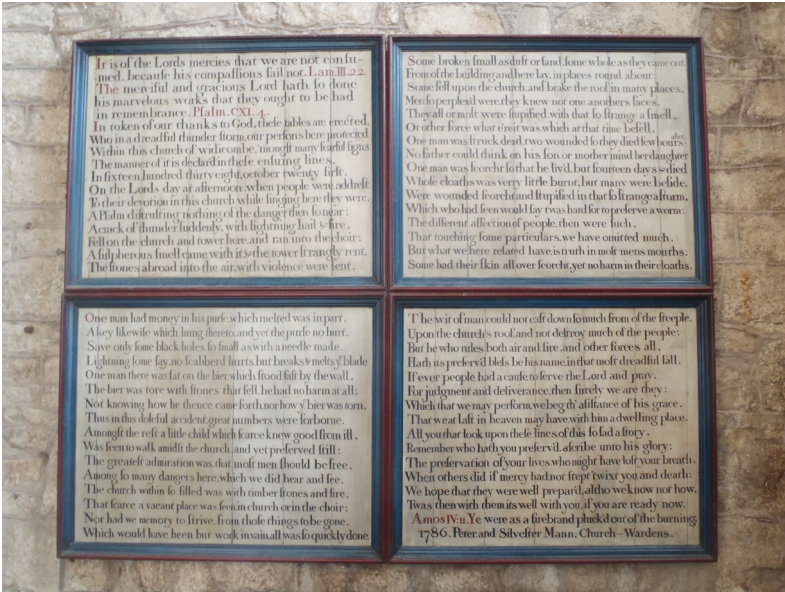 It is of the Lords mercies that we are not conſu-
med, becauſe his compaſſions fail not. Lam.III.22.
The merciful and gracious Lord hath ſo done
his marvelous works that they ought to be had
in remembrance. Pſalm. CXI.4.
In token of our thanks to God, theſe tables are erected,
Who in a dreadful thunder ſtorm, our perſons here protected
Within this church of widicombe, 'mongſt many fearful ſigns
The manner of it is declar'd in theſe enſuing lines.
In ſixteen hundred thirty eight, october twenty firſt.
On the Lords day at afternoon, when people were addreſt
To their devotion in this church while ſinging here they were,
A Pſalm diſtruſting nothing of the danger then ſo near:
A crack of thunder ſuddenly, with lightning hail & fire.
Fell on the church and tower here, and ran into the choir:
A ſulpherous ſmell came with it, & the tower ſtrangly rent,
The ſtones abroad into the air, with violence were ſent.
Some broken ſmall as duſt or ſand, ſome whole as they came out,
From of the building and here lay, in places round about:
Some fell upon the church, and brake the roof in many places,
Men ſo perplex'd were, they knew not one anothers faces.
They all or moſt were ſtupified, with that ſo ſtrange a ſmell,
Or other force what e'er it was, which at that time befell.
One man was ſtruck dead, two wounded ſo they died few hours after
No father could think on his ſon, or mother mind her daughter
One man was ſcorcht ſo that he liv'd, but fourteen days & died
Whoſe cloaths was very little burnt, but many were beſide.
Were wounded ſcorcht and ſtupified in that ſo ſtrange a ſtorm,
Which who had ſeen would ſay t'was hard for to preſerve a worm:
The different affection of people, then were ſuch,
That touching ſome particulars, we have omitted much.
But what we here related have, is truth in moſt mens mouths:
Some had their ſkin all over ſcorcht, yet no harm in their cloaths.
One man had money in his purſe, which melted was in part,
A key likewiſe which hung thereto, and yet the purſe no hurt,
Save only ſome black holes, ſo ſmall as with a needle made.
Lightning ſome ſay, no ſcabberd hurts, but breaks & melts yᵉ blade
One man there was ſat on the bier, which ſtood faſt by the wall,
The bier was tore with ſtones that fell, he had no harm at all:
Not knowing how he thence came forth, nor how yᵉ bier was torn,
Thus in this doleful accident, great numbers were forborne.
Amongſt the reſt a little child which ſcarce knew good from ill,
Was ſeen to walk amidſt the church, and yet preſerved ſtill:
The greateſt admiration was, that moſt men ſhould be free,
Among ſo many dangers here, which we did hear and ſee.
The church within ſo filled was with timber ſtones and fire,
That ſcarce a vacant place was ſeen in church or in the choir:
Nor had we memory to ſtrive, from thoſe things to be gone,
Which would have been but work in vain, all was ſo quickly done
The wit of man could not caſt down ſo much from of the ſteeple,
Upon the church's roof, and not deſtroy much of the people:
But he who rules both air and fire, and other forces all,
Hath us preſerv'd bleſs be his name, in that moſt dreadful fall.
If ever people had a cauſe to ſerve the Lord and pray,
For judgment and deliverance, then ſurely we are they:
Which that we may perform, we beg th' aſiſtance of his grace,
That we at laſt in heaven may have, with him a dwelling place.
All you that look upon theſe lines, of this ſo ſad a ſtory,
Remember who hath you preſerv'd, aſcribe unto his glory:
The preſervation of your lives, who might have loſt your breath,
When others did if mercy had not ſtept 'twixt you and death:
We hope that they were well prepar'd, altho we know not how,
Twas then with them its well with you, if you are ready now.
Amos IV:11. Ye were as a firebrand pluck'd out of the burning.
1786. Peter and Silveſter Mann, Church-Wardens.